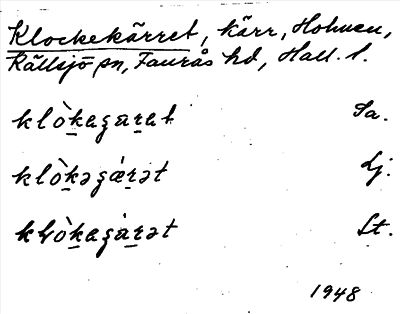 Klockekärret, kärr, Holmen,
Källsjö sn, Faurås hd, Hall. l.
klò̱keʂaṟet Sa.
klò̱kəʂæ̀ṟət Lj.
kɽò̱keʂàṟət St.
1948